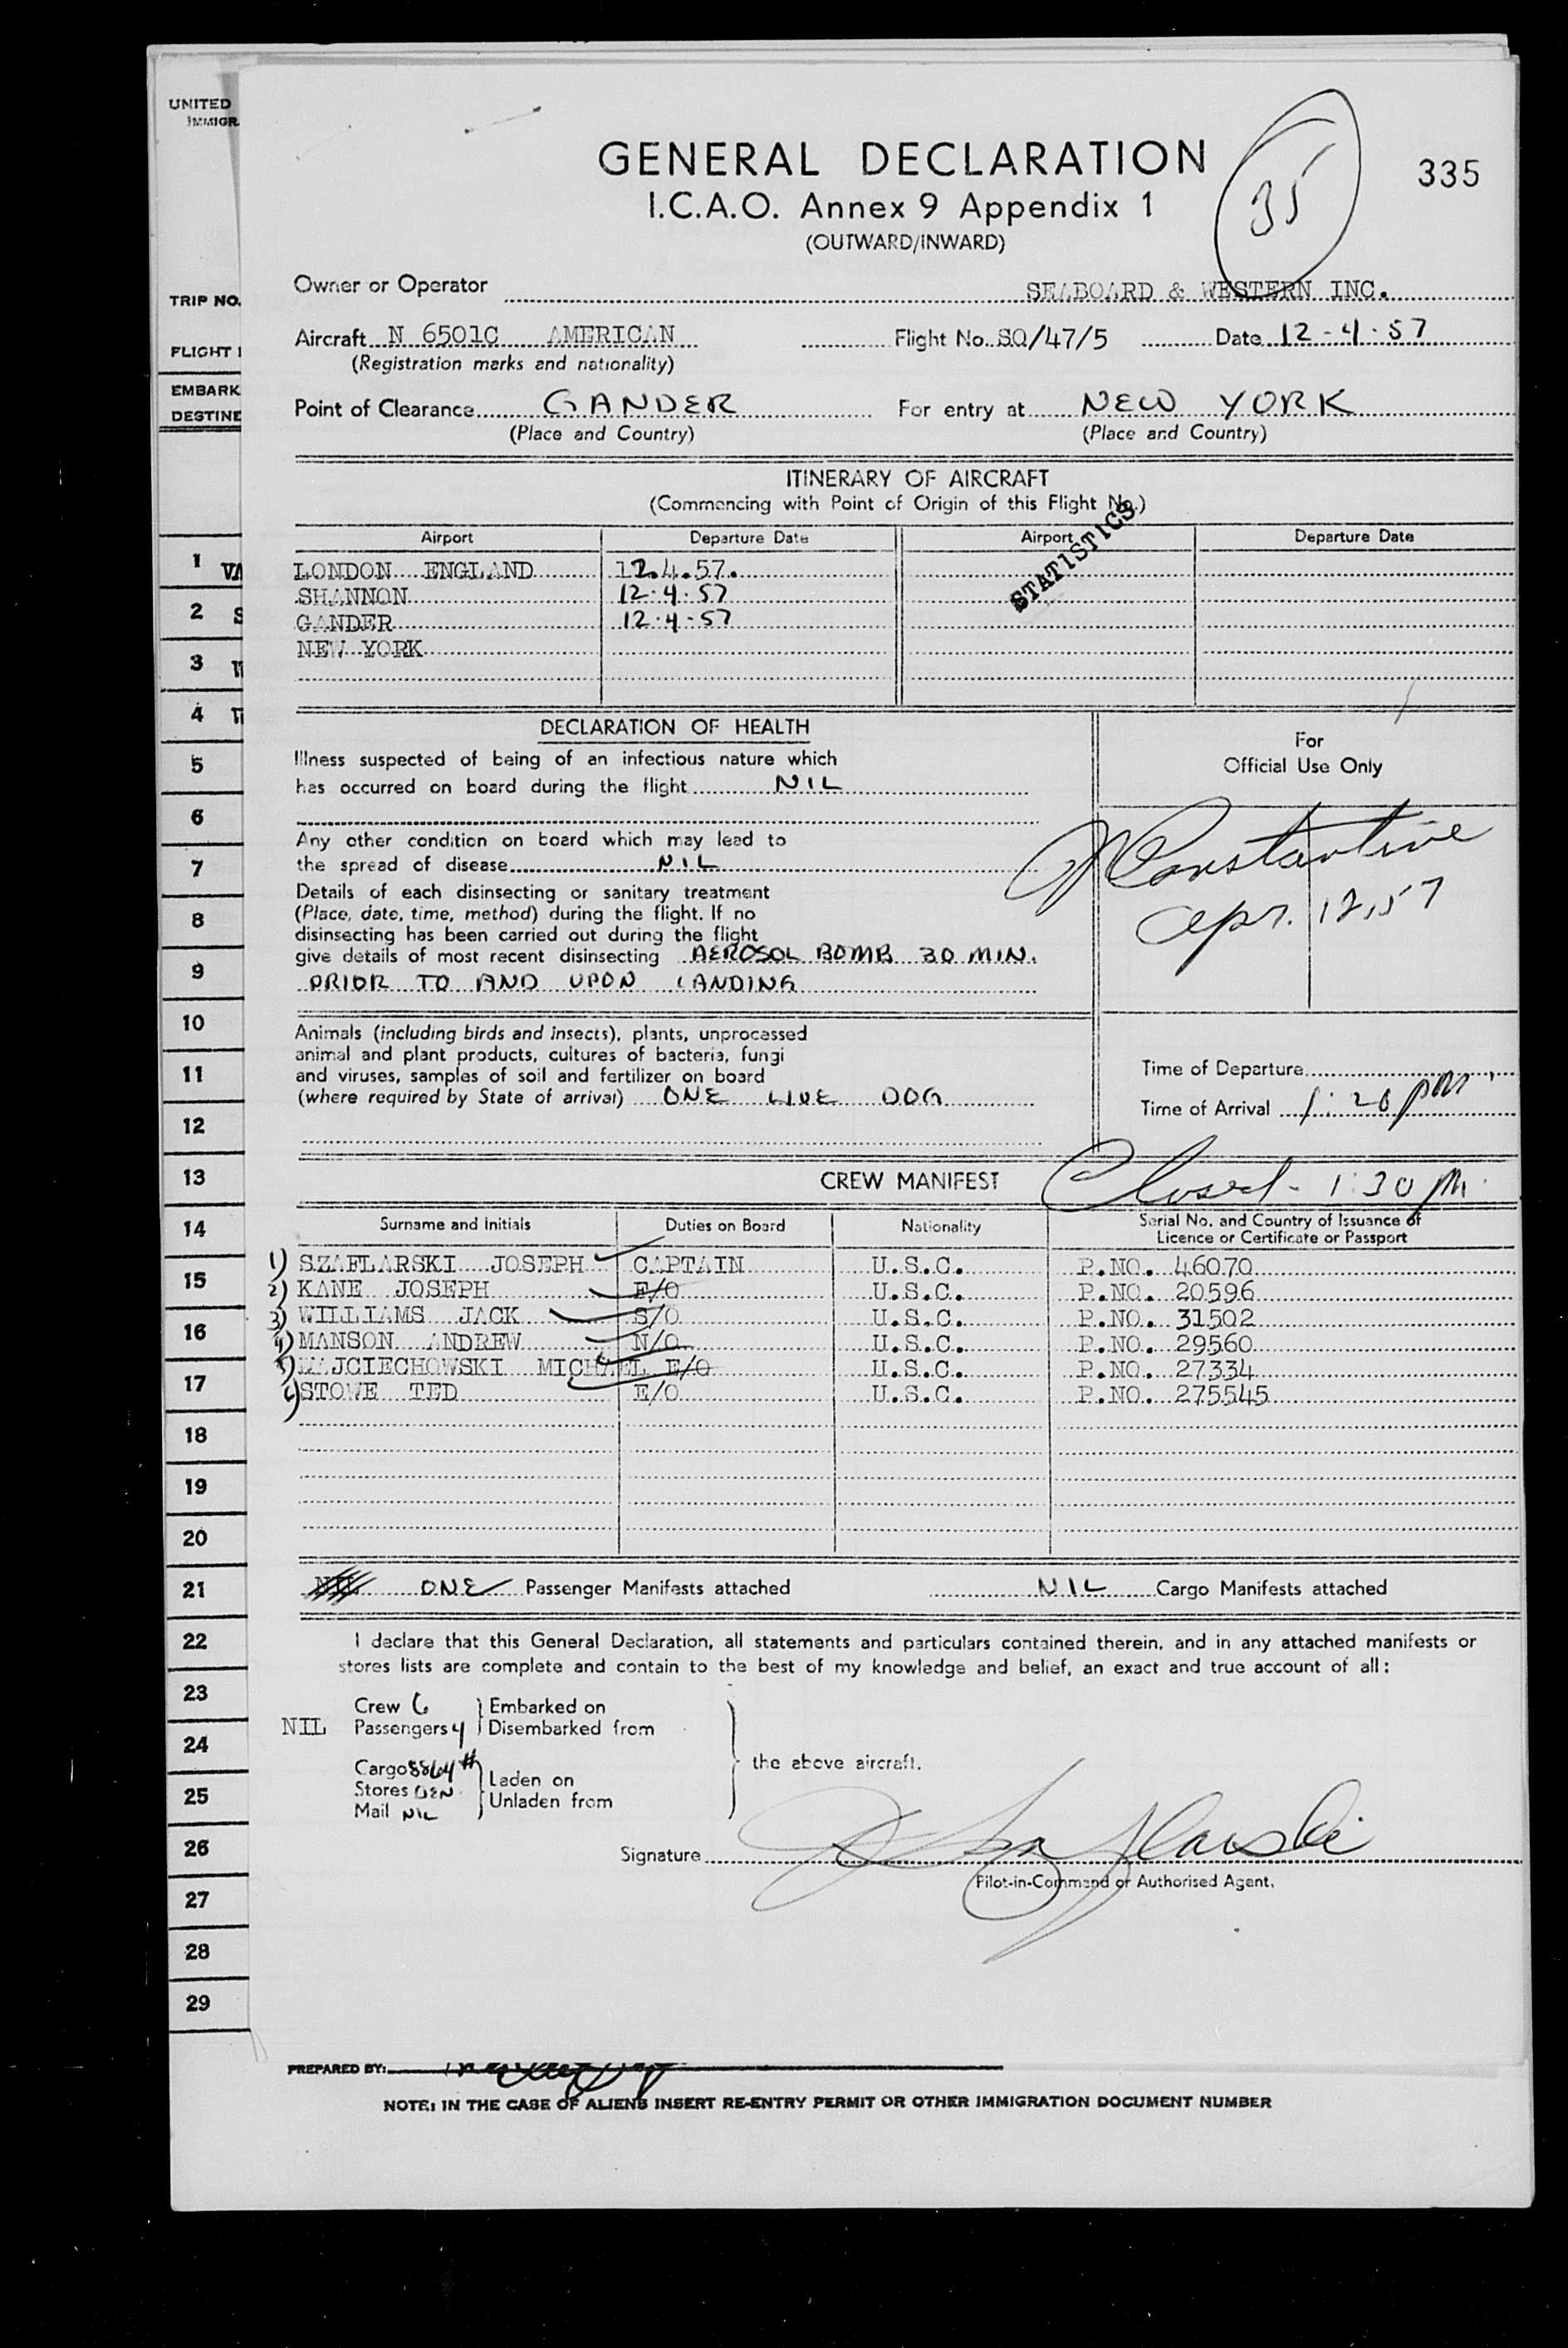 UNITED
IMMIGR
GENERAL DECLARATION
35
335
I.C.A.O. Annex 9 Appendix 1
(OUTWARD/INWARD)
TRIP NO.
Owner or Operator SEABOARD & WESTERN INC.
FLIGHT
Aircraft N 6501C AMERICAN Flight No. SQ/47/5 Date 12-4-57
(Registration marks and nationality)
EMBARK
DESTINE
Point of Clearance GANDER For entry at NEW YORK
(Place and Country) (Place and Country)
ITINERARY OF AIRCRAFT
(Commencing with Point of Origin of this Flight No.)
STATISTICS
Airport Departure Date Airport Departure Date
LONDON ENGLAND 12.4.57.
SHANNON 12.4.57
GANDER 12.4.57
NEW YORK
DECLARATION OF HEALTH
For
Official Use Only
Illness suspected of being of an infectious nature which
has occurred on board during the flight NIL
Any other condition on board which may lead to
the spread of disease NIL
Constantine
Apr. 12, 57
Details of each disinsecting or sanitary treatment
(Place, date, time, method) during the flight. If no
disinsecting has been carried out during the flight
give details of most recent disinsecting AEROSOL BOMB 30 MIN.
PRIOR TO AND UPON LANDING
Animals (including birds and insects), plants, unprocessed
animal and plant products, cultures of bacteria, fungi
and viruses, samples of soil and fertilizer on board
(where required by State of arrival) ONE LIVE DOG
Time of Departure
Time of Arrival 1:20 pm
CREW MANIFEST
Closed - 1:30 pm
Surname and Initials Duties on Board Nationality Serial No. and Country of Issuance of
Licence or Certificate or Passport
1) SZAFLARSKI JOSEPH CAPTAIN U.S.C. P.NO. 46070
2) KANE JOSEPH F/O U.S.C. P.NO. 20596
3) WILLIAMS JACK S/O U.S.C. P.NO. 31502
4) MANSON ANDREW N/O U.S.C. P.NO. 29560
5) WAJCIECHOWSKI MICHAEL E/O U.S.C. P.NO. 27334
6) STOWE TED E/O U.S.C. P.NO. 275545
NIL ONE Passenger Manifests attached NIL Cargo Manifests attached
I declare that this General Declaration, all statements and particulars contained therein, and in any attached manifests or
stores lists are complete and contain to the best of my knowledge and belief, an exact and true account of all:
Crew 6 Embarked on
NIL Passengers 4 Disembarked from
the above aircraft.
Cargo 8864# Laden on
Stores GEN. Unladen from
Mail NIL
Signature J Szaflarski
Pilot-in-Command or Authorised Agent.
1
2
3
4
5
6
7
8
9
10
11
12
13
14
15
16
17
18
19
20
21
22
23
24
25
26
27
28
29
PREPARED BY:
NOTE: IN THE CASE OF ALIENS INSERT RE-ENTRY PERMIT OR OTHER IMMIGRATION DOCUMENT NUMBER